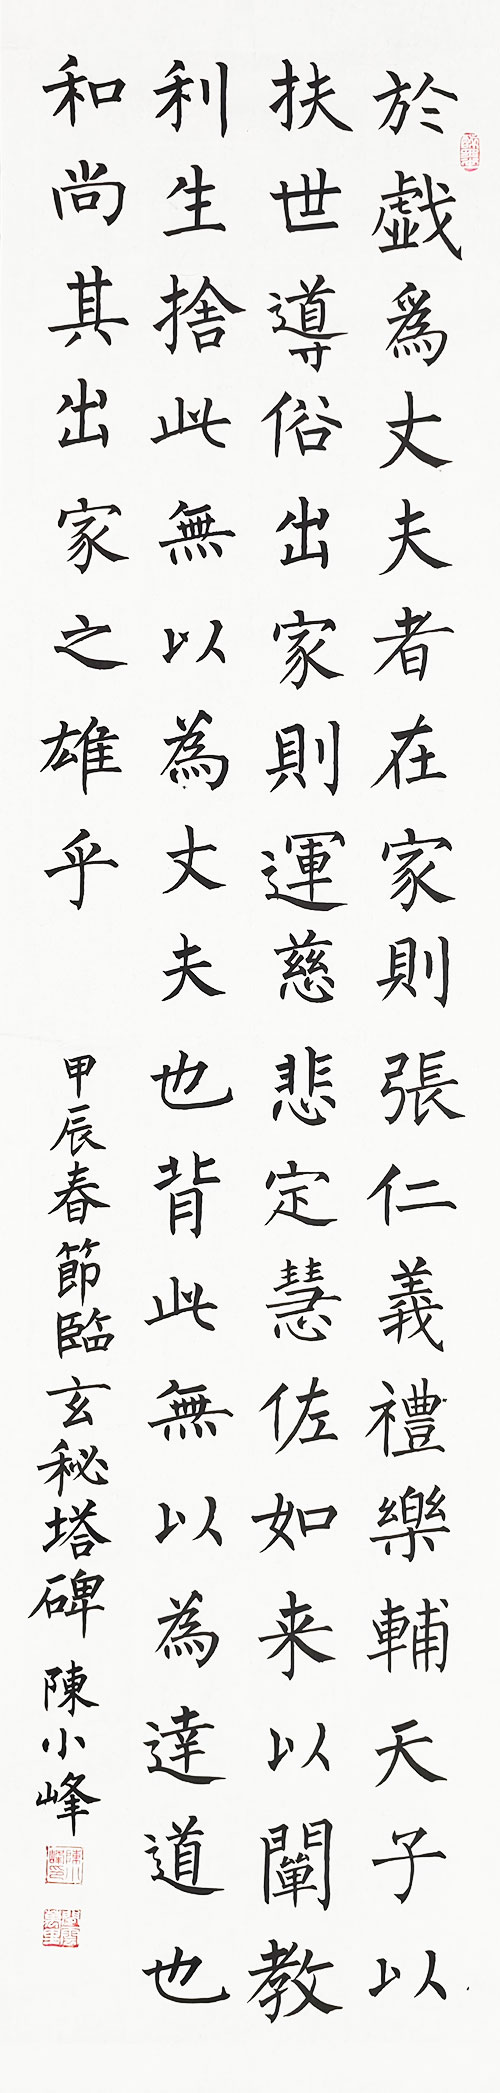 於戱爲丈夫者在家則張仁義禮樂輔天子以
扶世導俗出家則運慈悲定慧佐如来以闡教
利生捨此無以為丈夫也背此無以為達道也
和尚其出家之雄乎
甲辰春節臨玄秘塔碑陳小峰